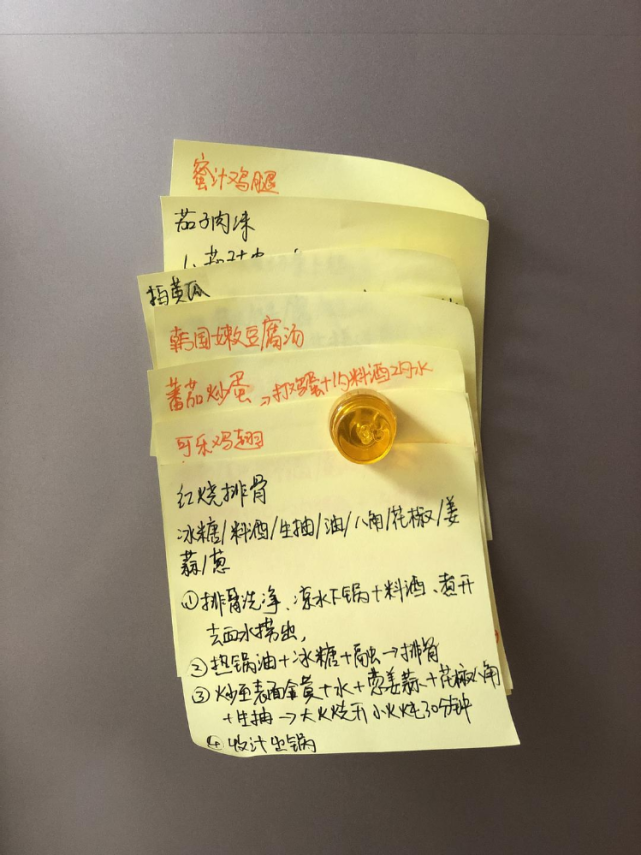 蜜汁鸡腿
茄子肉沫
1、茄子
拍黄瓜
韩国嫩豆腐汤
蕃茄炒蛋→打鸡蛋+1勺料酒2勺水
可乐鸡翅
红烧排骨
冰糖/料酒/生抽/油/八角/花椒/姜
蒜/葱
①排骨洗净、凉水下锅+料酒、煮开
去血水捞出,
②热锅油+冰糖+融→排骨
③炒至表面金黄+水+葱姜蒜+花椒八角
+生抽→大火烧开小火炖30分钟
④收汁出锅